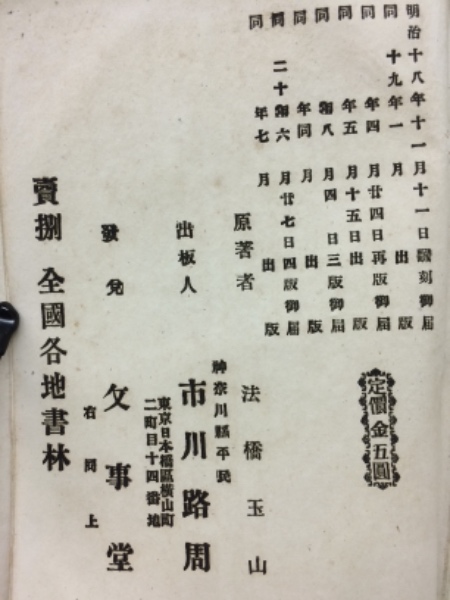 明治十八年十一月十一日飜刻御届
同十九年一月出版
同年四月廿四日再版御届
同年五月十五日出版
同年八月四日三版御届
同年同月出版
同二十年六月廿七日四版御届
同年七月出版
定價金五圓
原著者 法橋玉山
出板人 神奈川縣平民
市川路周
東京日本橋區横山町
二町目十四番地
發兌 文事堂
右同上
賣捌 全國各地書林